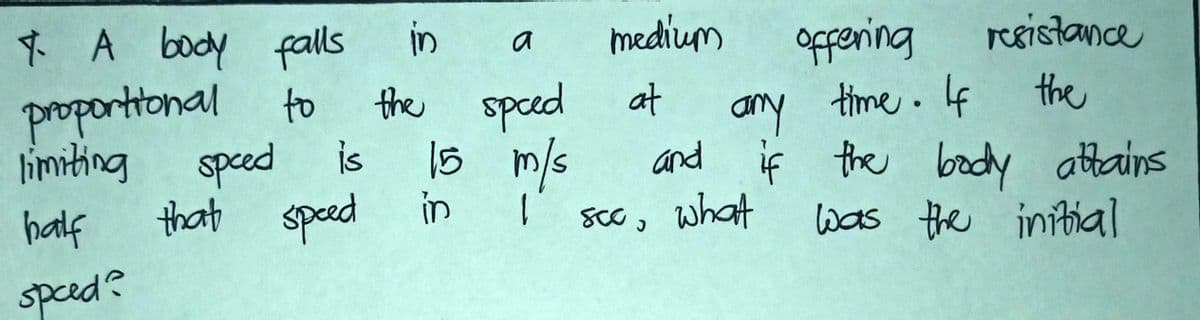 7. A body falls in a medium offering resistance
proportional to the speed at any time. If the
limiting speed is 15 m/s and if the body attains
half that speed in 1 sec, what was the initial
speed?